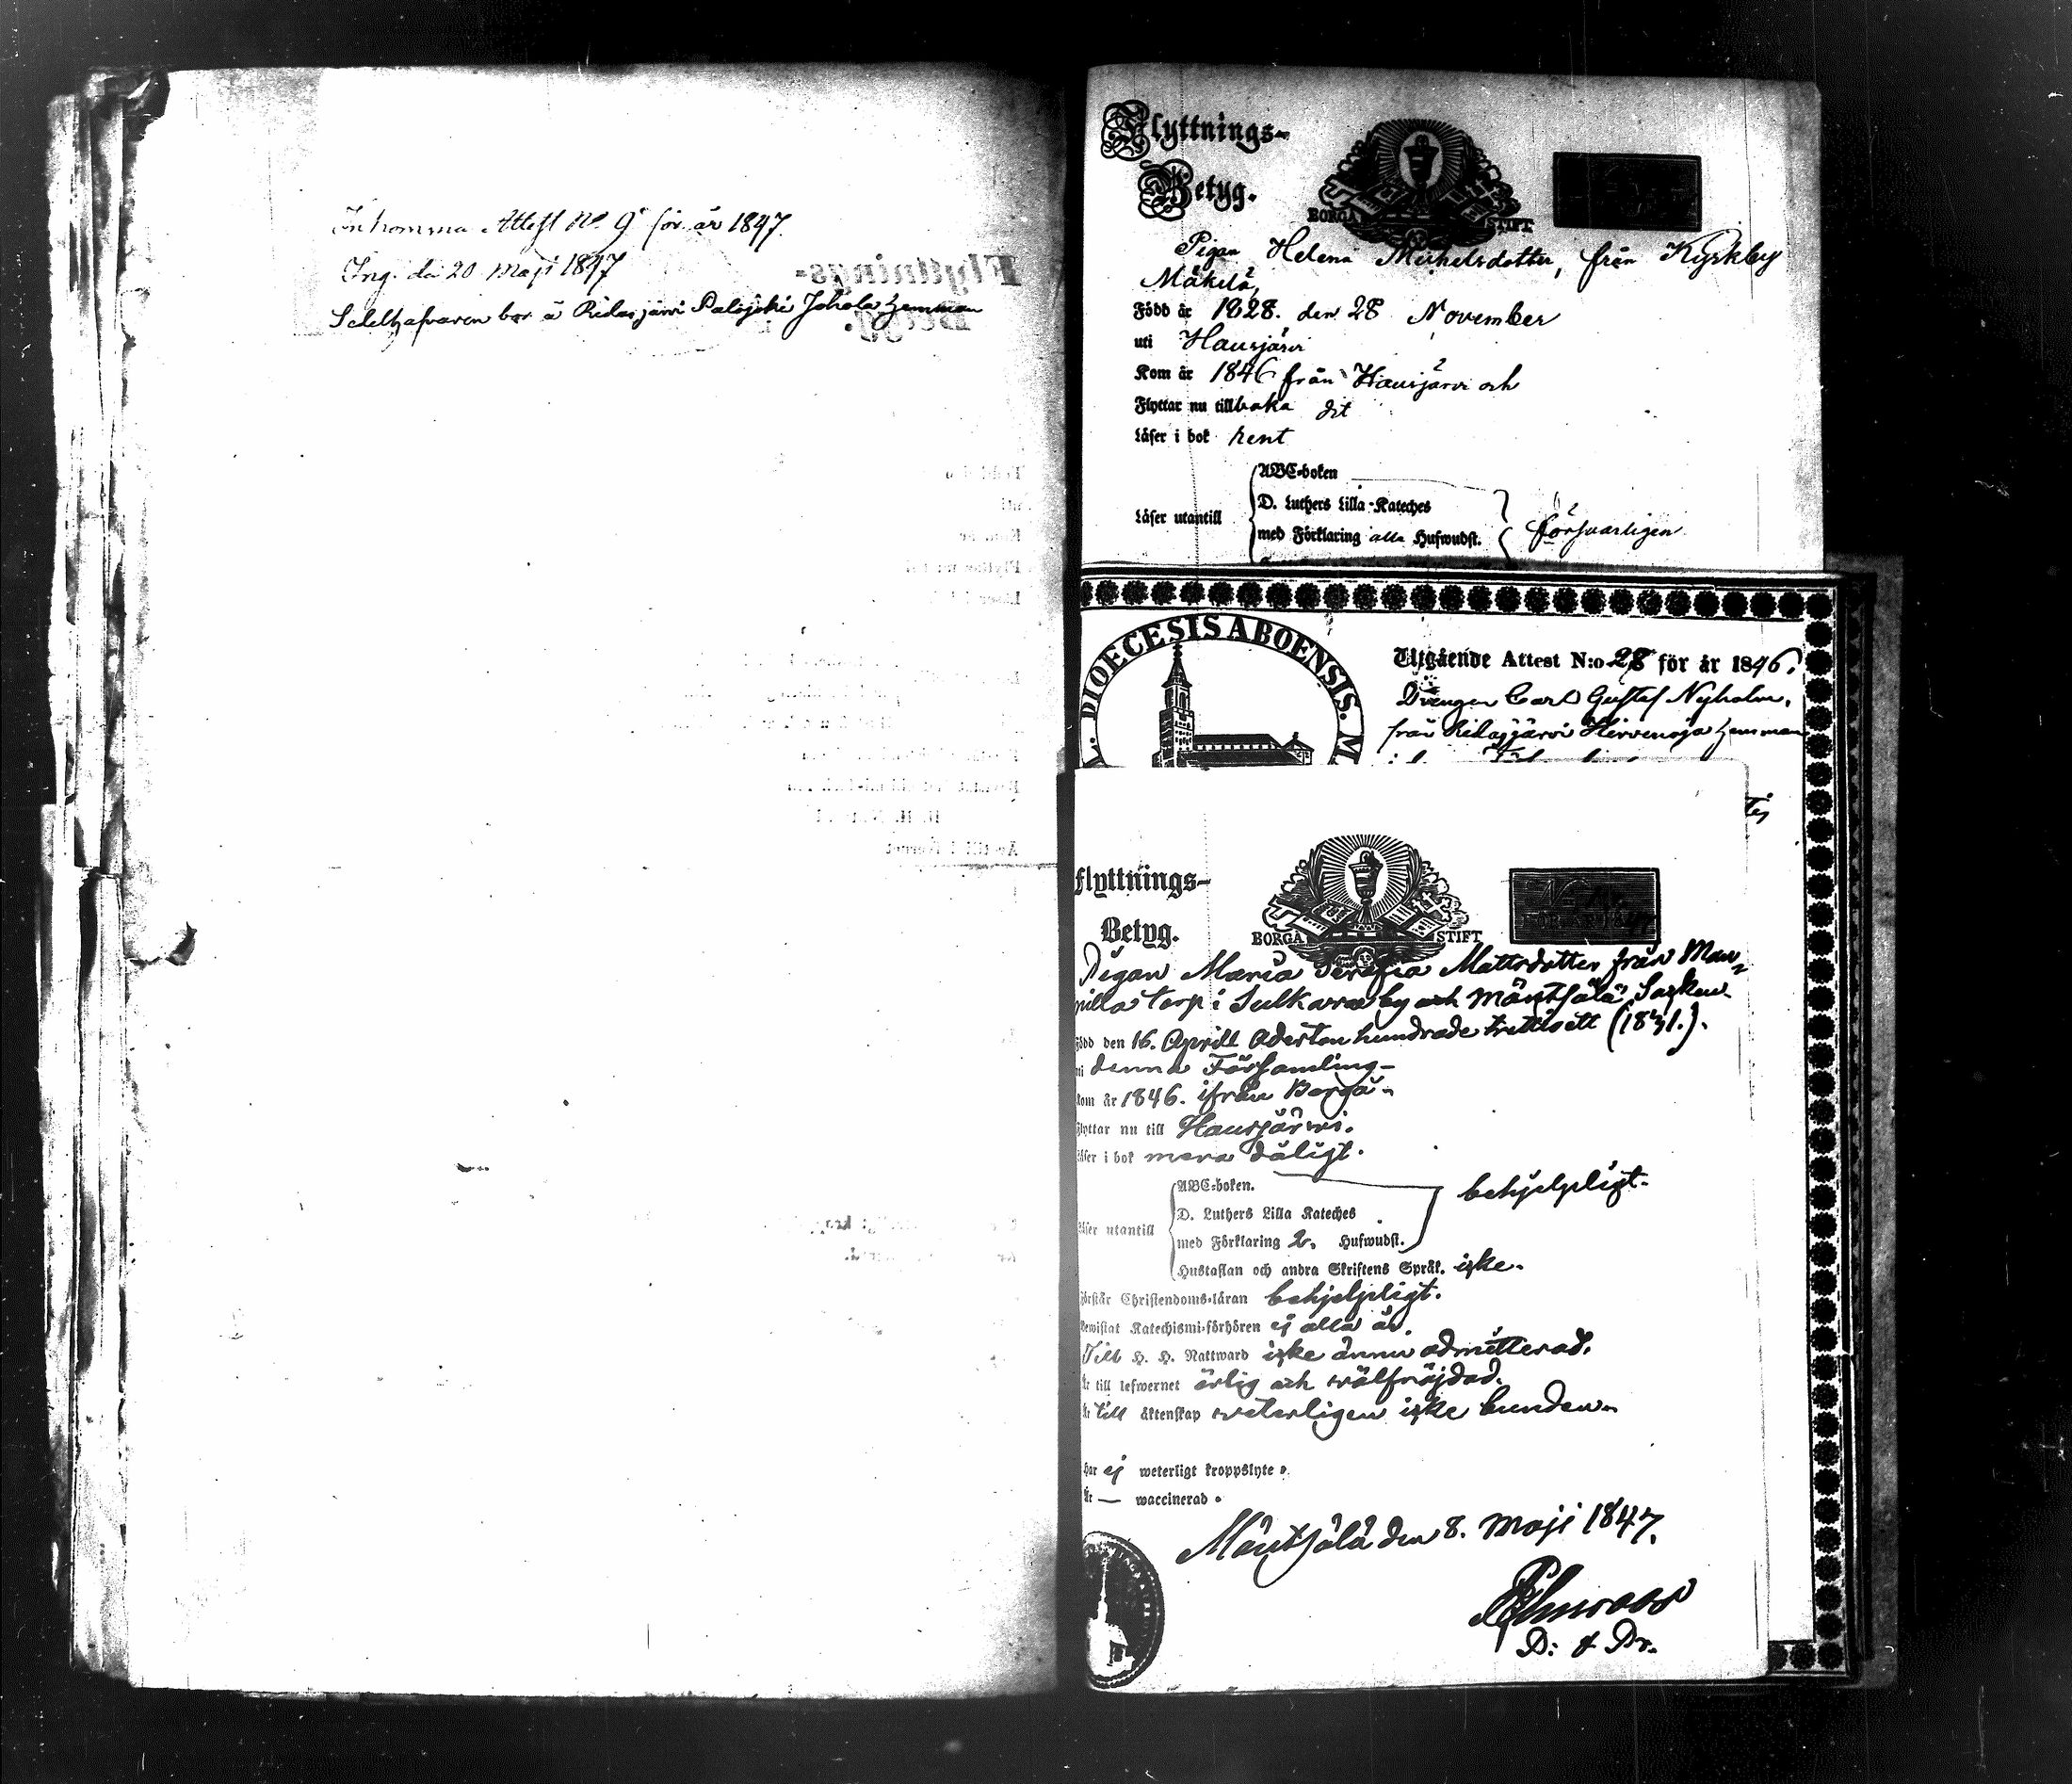 Inkomna Attest No 9 för år 1847.
Ing. den 20 Maji 1847
Sedelhafvaren bor å Ridasjärvi Palojoki Johola hemman
Flyttnings-
Betyg.
BORGÅ STIFT
Pigan Helena Michelsdotter, från Kyrkby
Mäkelä,
Född år 1828. den 28 November
uti Hausjärvi
Kom år 1846 från Hausjärvi och
Flyttar nu tillbaka dit
Läser i bok rent
ABC-boken
D. Luthers Lilla Kateches
Läser utantill
med Förklaring alla Hufwudst.
försvarligen
DIOECESIS ABOENSIS. M
Utgående Attest N:o 28 för år 1846.
Drengen Carl Gustaf Nyholm,
från Ridasjärvi Hirvenoja hemman
Flyttnings-
Betyg.
BORGÅ STIFT
Pigan Maria Serafia Mattsdotter från Man-
nilla torp i Sulkava by och Mäntsälä Socken.
Född den 16. April Aderton hundrade trettioett (1831.).
uti denna Församling-
Kom år 1846. ifrån Borgå-
Flyttar nu till Hausjärvi.
Läser i bok mera dåligt.
ABC-boken.
D. Luthers Lilla Kateches
behjelpligt.
Läser utantill
med Förklaring 2. Hufwudst.
Hustaflan och andra Skriftens Språk. icke.
Förstår Christendoms-läran behjelpligt.
Bewistat Katechismi-förhören ej alla år.
Till H. H. Nattward icke ännu admitterad.
Är till lefwernet ärlig och välfräjdad.
Är till äktenskap veterligen icke bunden.
Har ej weterligt kroppslyte.
Är — waccinerad.
Mäntsälä den 8. Maji 1847.